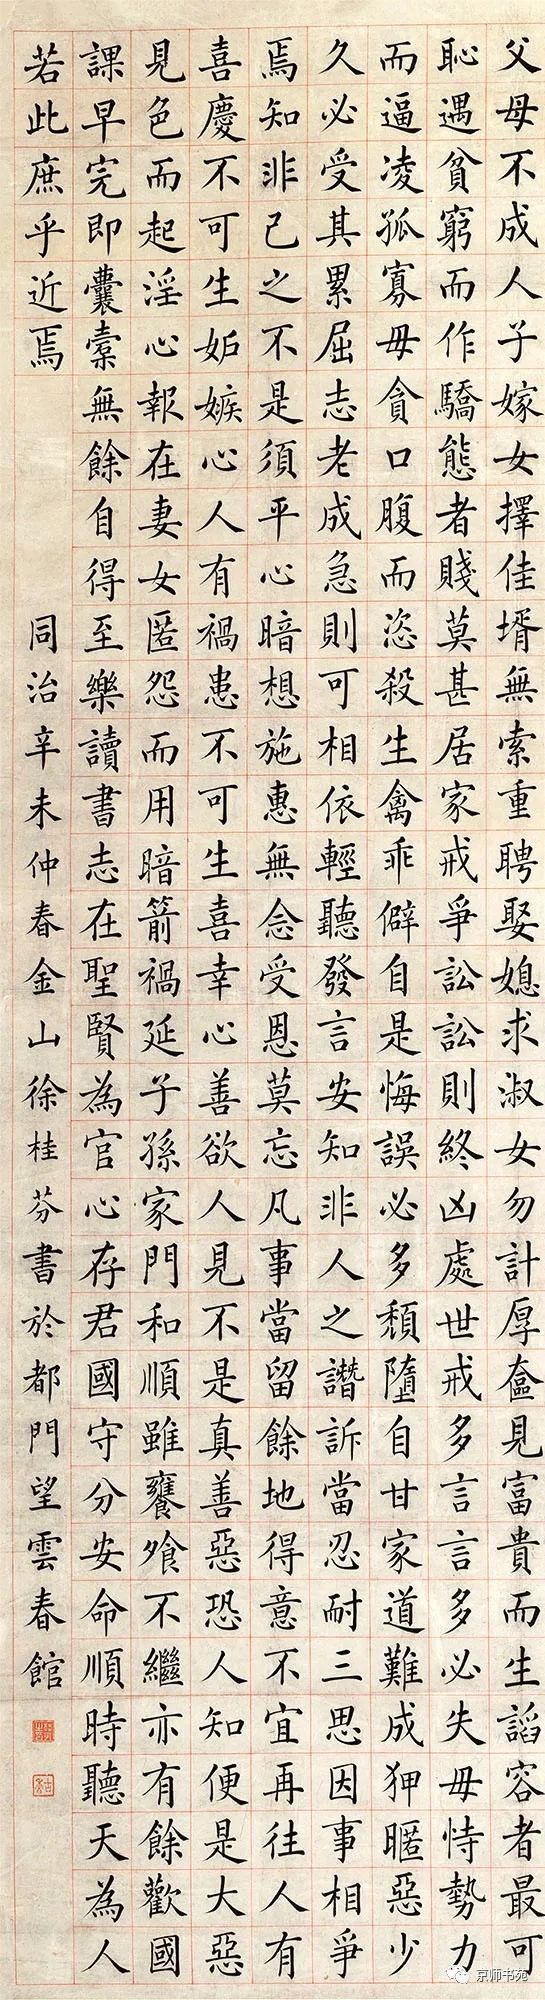 父母不成人子嫁女擇佳壻無索重聘娶媳求淑女勿計厚奩見富貴而生謟容者最可
恥遇貧窮而作驕態者賤莫甚居家戒爭訟訟則終凶處世戒多言言多必失毋恃勢力
而逼凌孤寡毋貪口腹而恣殺生禽乖僻自是悔誤必多頹墮自甘家道難成狎暱惡少
久必受其累屈志老成急則可相依輕聽發言安知非人之譖訴當忍耐三思因事相爭
焉知非己之不是須平心暗想施惠無念受恩莫忘凡事當留餘地得意不宜再往人有
喜慶不可生妬嫉心人有禍患不可生喜幸心善欲人見不是真善惡恐人知便是大惡
見色而起淫心報在妻女匿怨而用暗箭禍延子孫家門和順雖饔飱不繼亦有餘歡國
課早完即囊橐無餘自得至樂讀書志在聖賢為官心存君國守分安命順時聽天為人
若此庶乎近焉 同治辛未仲春金山徐桂芬書於都門望雲春館
京师书苑